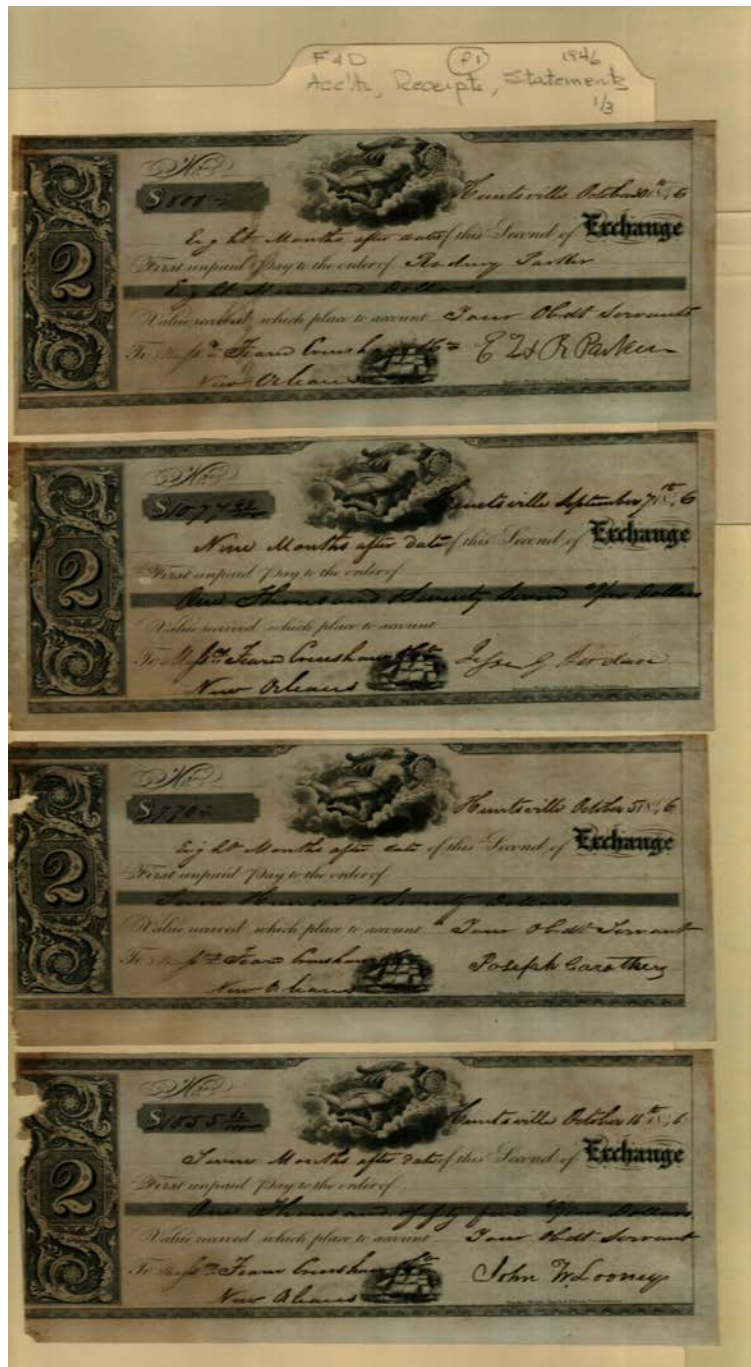 F&D P1 1846
Acc'ts, Receipts, Statements
1/3
2
No
$800
Huntsville October 1846
Eight Months after date of this Second of Exchange
First unpaid Pay to the order of Rodney Parker
Eight Hundred Dollars
Value received which place to account Your Obdt Servants
To Mess Fearn Crenshaw & Co E L & R Parker
New Orleans
2
No
$1077
Huntsville September 7th 1846
Nine Months after date of this Second of Exchange
First unpaid Pay to the order of
One Thousand & Seventy Seven Dollars
Value received which place to account
To Mess Fearn Crenshaw & Co
New Orleans
2
No
$770
Huntsville October 5 1846
Eight Months after date of this Second of Exchange
First unpaid Pay to the order of
Seven Hundred & Seventy Dollars
Value received which place to account Your Obdt Servant
To Mess Fearn Crenshaw Joseph Carothers
New Orleans
2
No
$1055
Huntsville October 16th 1846
Seven Months after date of this Second of Exchange
First unpaid Pay to the order of
One Thousand & fifty five Dollars
Value received which place to account Your Obdt Servant
To Mess Fearn Crenshaw & Co John W. Looney
New Orleans